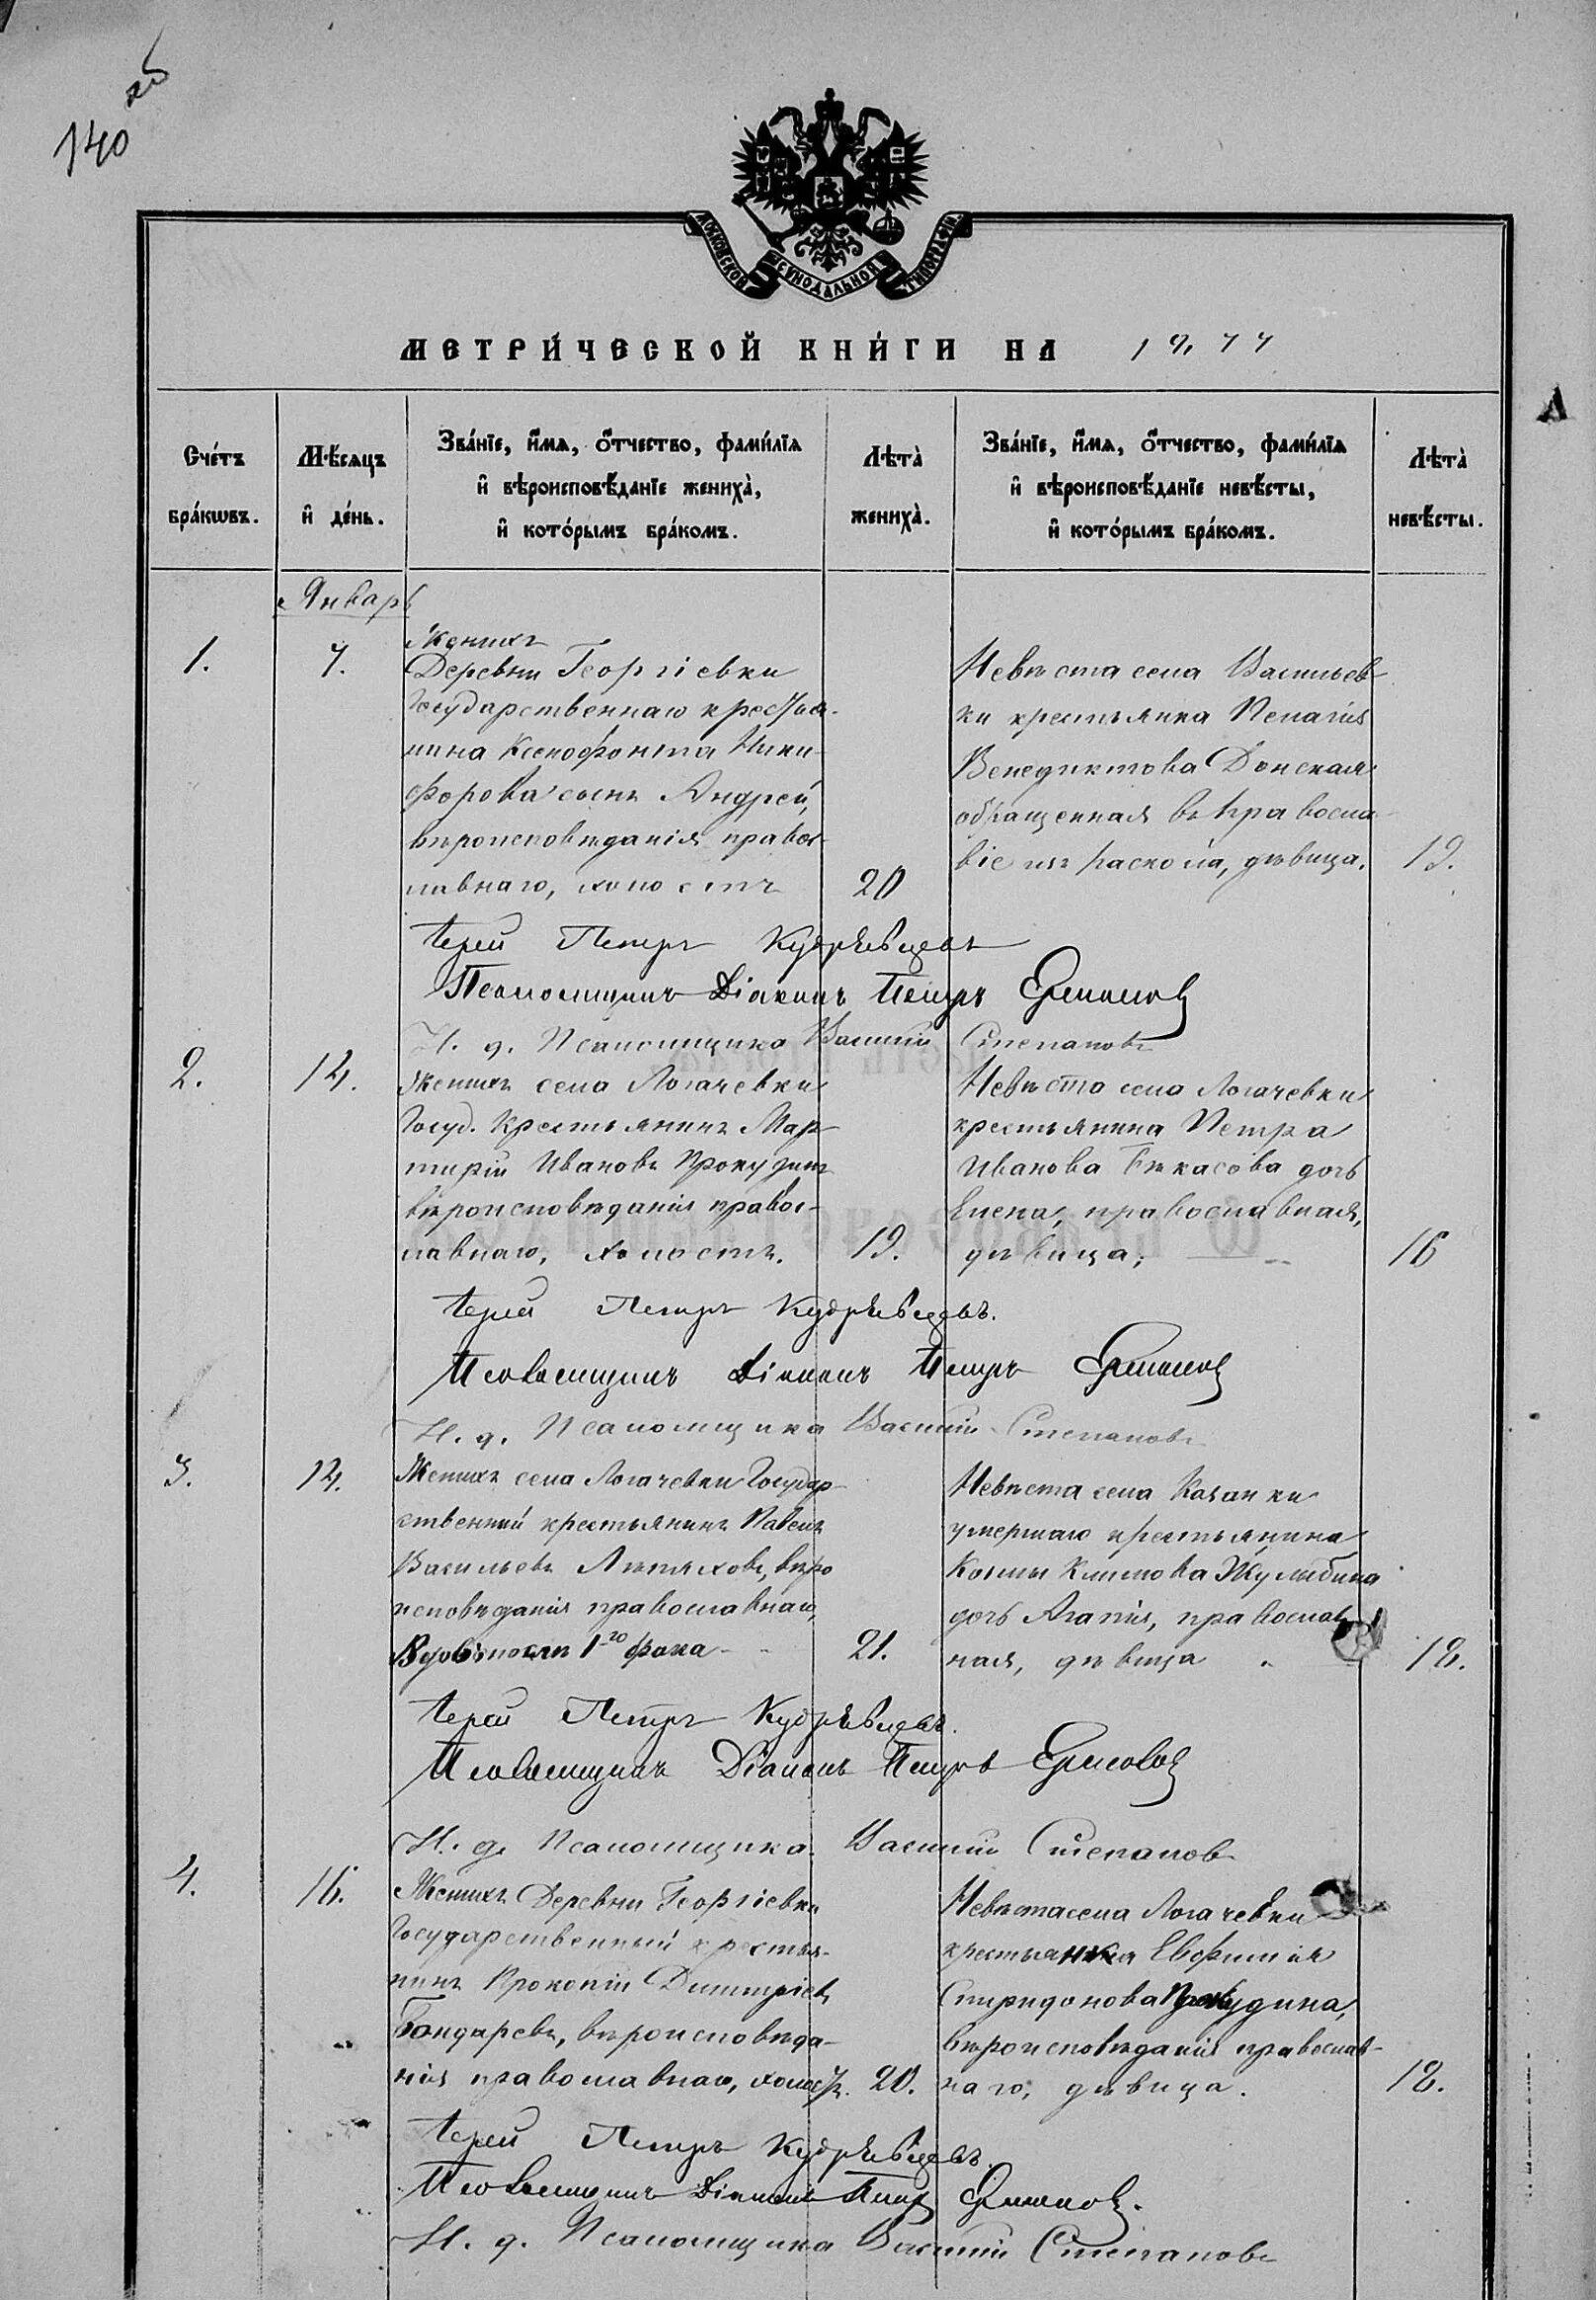 140 об
МОСКОВСКОЙ СѴНОДАЛЬНОЙ ТИПОГРАФІИ
МЕТРИ́ЧЕСКОЙ КНИ́ГИ НА 1877
Сче́тъ бра́кѡвъ.
Мѣ́сѧцъ и҆ де́нь.
Зва́нїе, и҆́мѧ, ѻ҆́тчество, фами́лїѧ
и҆ вѣроисповѣ́данїе жениха̀,
и҆ кото́рымъ бра́комъ.
Лѣта̀ жениха̀.
Зва́нїе, и҆́мѧ, ѻ҆́тчество, фами́лїѧ
и҆ вѣроисповѣ́данїе невѣ́сты,
и҆ кото́рымъ бра́комъ.
Лѣта̀ невѣ́сты.
Январь
1.
7.
Женихъ
Деревни Георгіевки
Государственнаго крестья-
нина Ксенофонта Ники-
форова сынъ Андрей,
вѣроисповѣданія правос-
лавнаго, холостъ
20
Невѣста села Васильев-
ки крестьянка Пелагія
Венедиктова Донская
обращенная въ правосла-
віе изъ раскола, дѣвица.
19.
Іерей Петръ Кудрявцевъ
Псаломщикъ Діаконъ Петръ
И. д. Псаломщика Василій Степановъ
2.
12.
Женихъ села Логачевки
Госуд. Крестьянинъ Мар-
тирій Ивановъ Прокудинъ
вѣроисповѣданія правос-
лавнаго, холостъ.
19.
Невѣста села Логачевки
крестьянина Петра
Иванова Бекасова дочь
Елена, православная,
дѣвица;
16
Іерей Петръ Кудрявцевъ.
Псаломщикъ Діаконъ Петръ
И. д. Псаломщика Василій Степановъ
3.
12.
Женихъ села Логачевки Государ-
ственный крестьянинъ Павелъ
Васильевъ вѣро
исповѣданія православнаго,
1го брака
21.
Невѣста села Казанки
умершаго крестьянина
Козмы Климова Жулыбина
дочь Агапія, православ
ная, дѣвица
18.
Іерей Петръ Кудрявцевъ.
Псаломщикъ Діаконъ Петръ
И. д. Псаломщика Василій Степановъ
4.
16.
Женихъ Деревни Георгіевки
Государственный крестья-
нинъ Прокопій Димитріевъ
Бондаревъ, вѣроисповѣда-
нія православнаго, холостъ.
20.
Невѣста села Логачевки
крестьянка Евфимія
Спиридонова Прокудина,
вѣроисповѣданія православ-
наго, дѣвица.
18.
Іерей Петръ Кудрявцевъ.
Псаломщикъ Діаконъ Петръ
И. д. Псаломщика Василій Степановъ